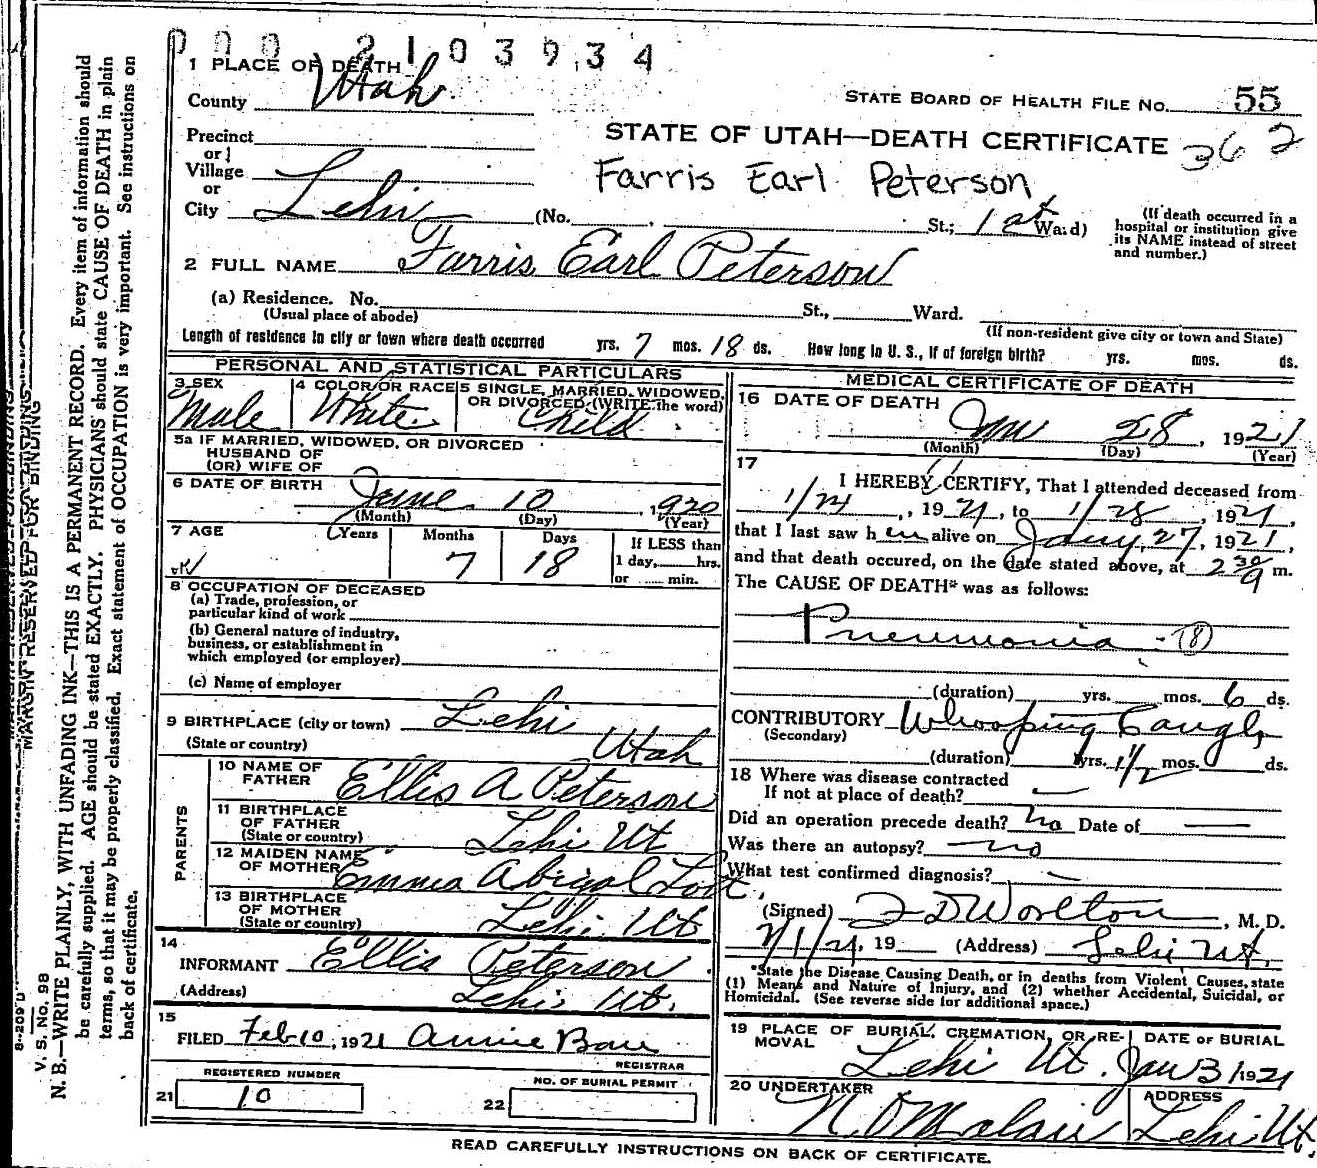 000 2103934
1 PLACE OF DEATH
County Utah
STATE BOARD OF HEALTH FILE NO. 55
Precinct
or
Village
or
City Lehi (No. St.; 1st Ward)
STATE OF UTAH—DEATH CERTIFICATE 362
Farris Earl Peterson
(If death occurred in a
hospital or institution give
its NAME instead of street
and number.)
2 FULL NAME Farris Earl Peterson
(a) Residence. No. St., Ward.
(Usual place of abode) (If non-resident give city or town and State)
Length of residence in city or town where death occurred yrs. 7 mos. 18 ds. How long in U. S., if of foreign birth? yrs. mos. ds.
PERSONAL AND STATISTICAL PARTICULARS
3 SEX 4 COLOR OR RACE 5 SINGLE, MARRIED, WIDOWED,
OR DIVORCED (WRITE the word)
Male White Child
5a IF MARRIED, WIDOWED, OR DIVORCED
HUSBAND OF
(OR) WIFE OF
6 DATE OF BIRTH
June 10, 1920
(Month) (Day) (Year)
7 AGE Years Months Days If LESS than
7 18 1 day, hrs.
or min.
8 OCCUPATION OF DECEASED
(a) Trade, profession, or
particular kind of work
(b) General nature of industry,
business, or establishment in
which employed (or employer)
(c) Name of employer
9 BIRTHPLACE (city or town) Lehi
(State or country) Utah
PARENTS
10 NAME OF
FATHER Ellis A Peterson
11 BIRTHPLACE
OF FATHER
(State or country) Lehi Ut
12 MAIDEN NAME
OF MOTHER Emma Abigal Lott
13 BIRTHPLACE
OF MOTHER
(State or country) Lehi Ut
14
INFORMANT Ellis Peterson
(Address) Lehi Ut.
15
FILED Feb 10, 1921 Annie
REGISTRAR
REGISTERED NUMBER
21 10
NO. OF BURIAL PERMIT
22
MEDICAL CERTIFICATE OF DEATH
16 DATE OF DEATH
Jan 28, 1921
(Month) (Day) (Year)
17
I HEREBY CERTIFY, That I attended deceased from
1/24, 1921, to 1/28, 1921,
that I last saw him alive on Jany, 27, 1921,
and that death occured, on the date stated above, at 2 30 a m.
The CAUSE OF DEATH* was as follows:
Pneumonia (8)
(duration) yrs. mos. 6 ds.
CONTRIBUTORY Whooping Cough
(Secondary)
(duration) yrs. 1/2 mos. ds.
18 Where was disease contracted
If not at place of death? —
Did an operation precede death? no Date of —
Was there an autopsy? no
What test confirmed diagnosis? —
(Signed) , M. D.
19 (Address) Lehi Ut.
*State the Disease Causing Death, or in deaths from Violent Causes, state
(1) Means and Nature of Injury, and (2) whether Accidental, Suicidal, or
Homicidal. (See reverse side for additional space.)
19 PLACE OF BURIAL, CREMATION, OR RE-
MOVAL
Lehi Ut.
DATE OF BURIAL
Jan 31 1921
20 UNDERTAKER
ADDRESS
Lehi Ut.
READ CAREFULLY INSTRUCTIONS ON BACK OF CERTIFICATE.
MARGIN RESERVED FOR BINDING
V. S. No. 98
N. B.—WRITE PLAINLY, WITH UNFADING INK—THIS IS A PERMANENT RECORD. Every item of information should
be carefully supplied. AGE should be stated EXACTLY. PHYSICIANS should state CAUSE OF DEATH in plain
terms, so that it may be properly classified. Exact statement of OCCUPATION is very important. See instructions on
back of certificate.